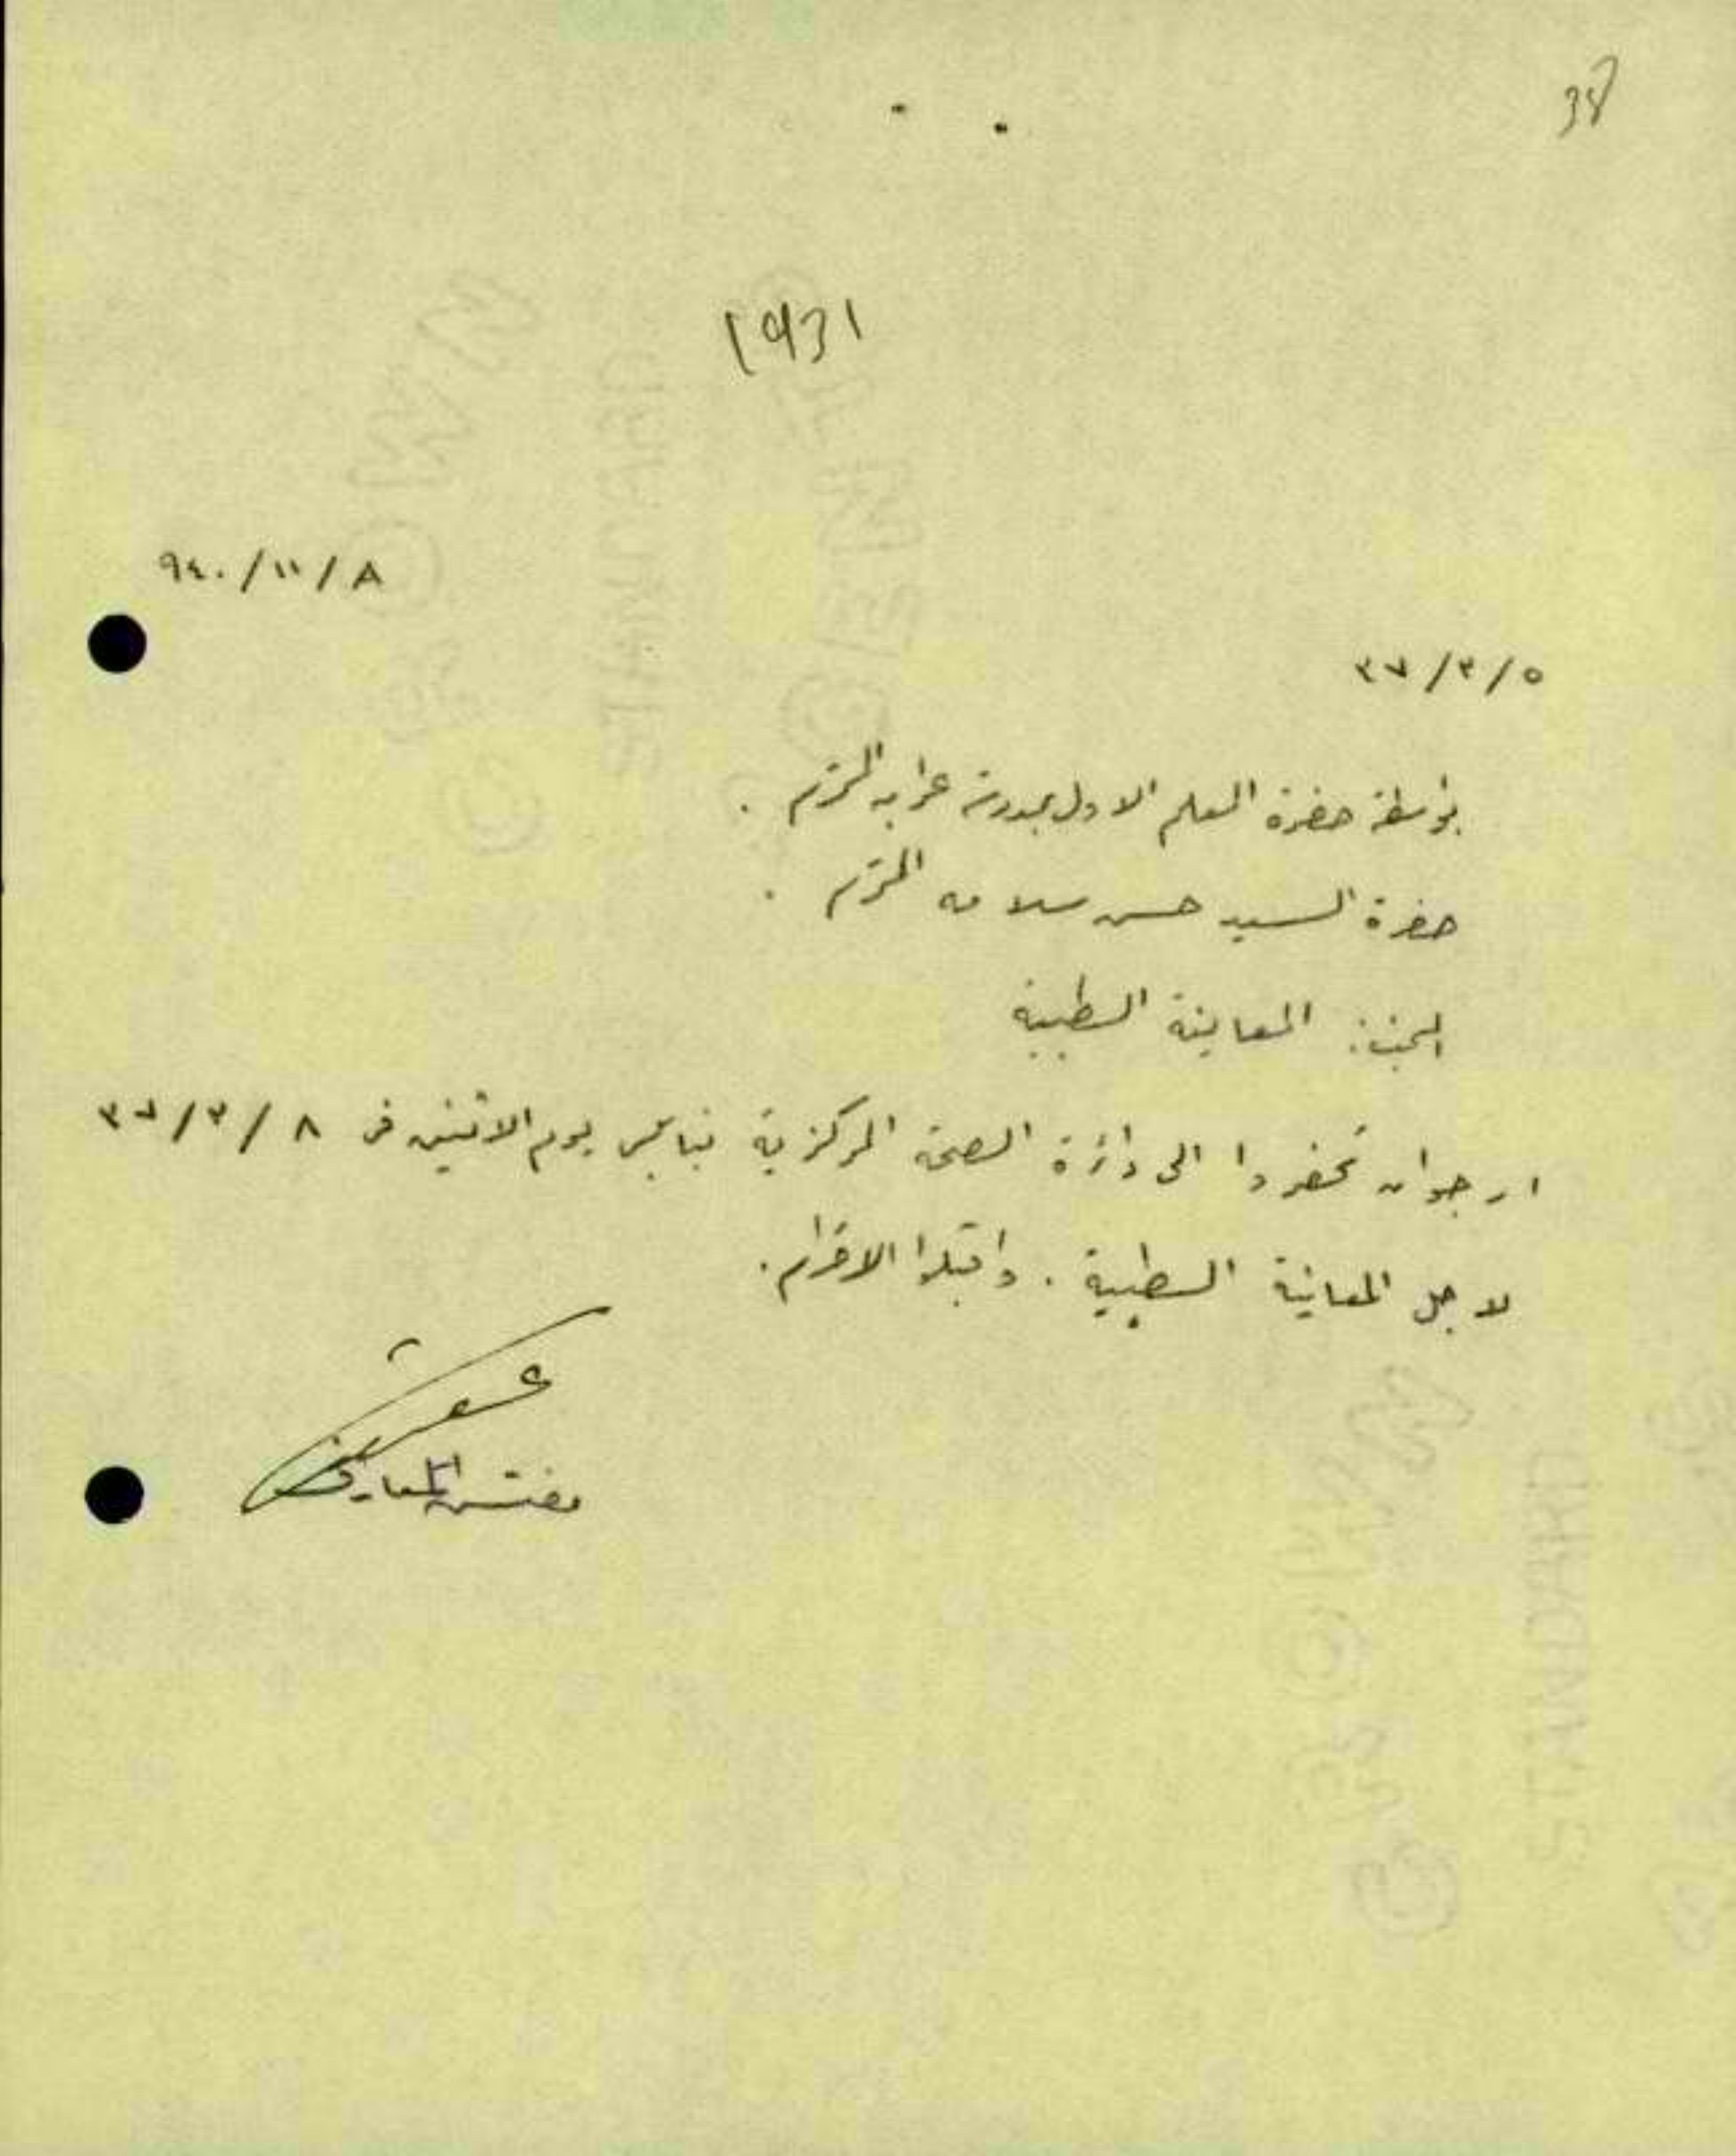 38
1931
٨/١١/٩٤٠
٣٧/٣/٥
بواسطة حضرة المعلم الاول بمدرسة عرابه المحترم .
حضرة السيد حسن سلامه المحترم .
البحث : المعاينة الطبية
ارجو ان تحضروا الى دائرة الصحة المركزية بنابلس يوم الاثنين في ٣٧/٣/٨
لاجل المعاينة الطبية . واقبلوا الاحترام .
مفتش المعارف